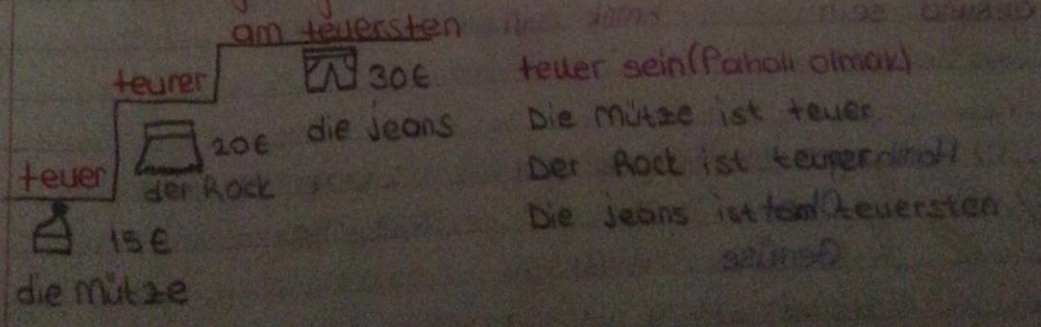 am teuersten
teurer
30€
die Jeans
20€
der Rock
teuer
15€
die Mütze
teuer sein (Pahalı olmak)
Die Mütze ist teuer
Der Rock ist
Die Jeans ist teuersten